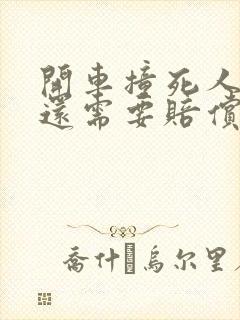 開車撞死人
還需要賠償
喬什 烏尔里